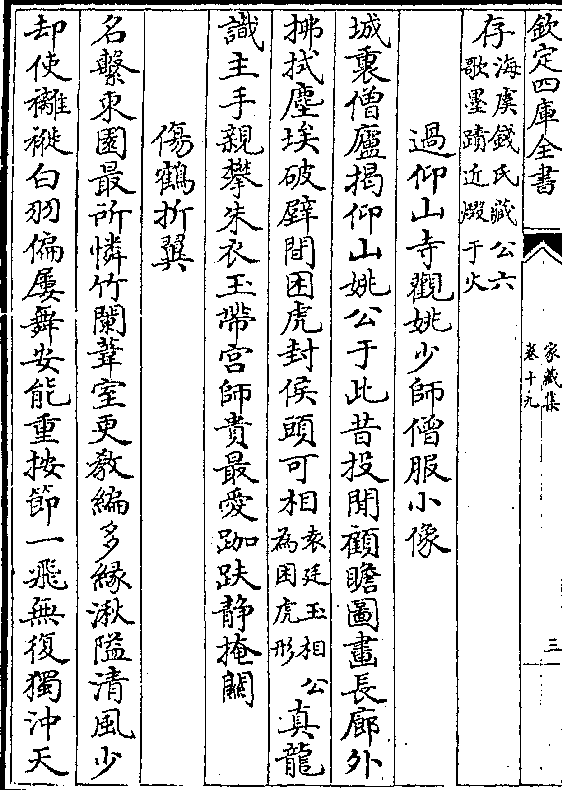 欽定四庫全書
家藏集
卷十九
三
存海虞錢氏藏公六
歌墨蹟近燬于火
過仰山寺觀姚少師僧服小像
城裏僧廬揭仰山姚公于此昔投閒顧瞻圖畫長廊外
拂拭塵埃破壁間困虎封侯頭可相袁廷玉相公為困虎形真龍
識主手親攀朱衣玉帶宫師貴最愛跏趺静掩關
傷鶴折翼
名繫東園最所憐竹闌葦室更教編多緣湫隘清風少
却使褵褷白羽偏屢舞安能重按節一飛無復獨沖天